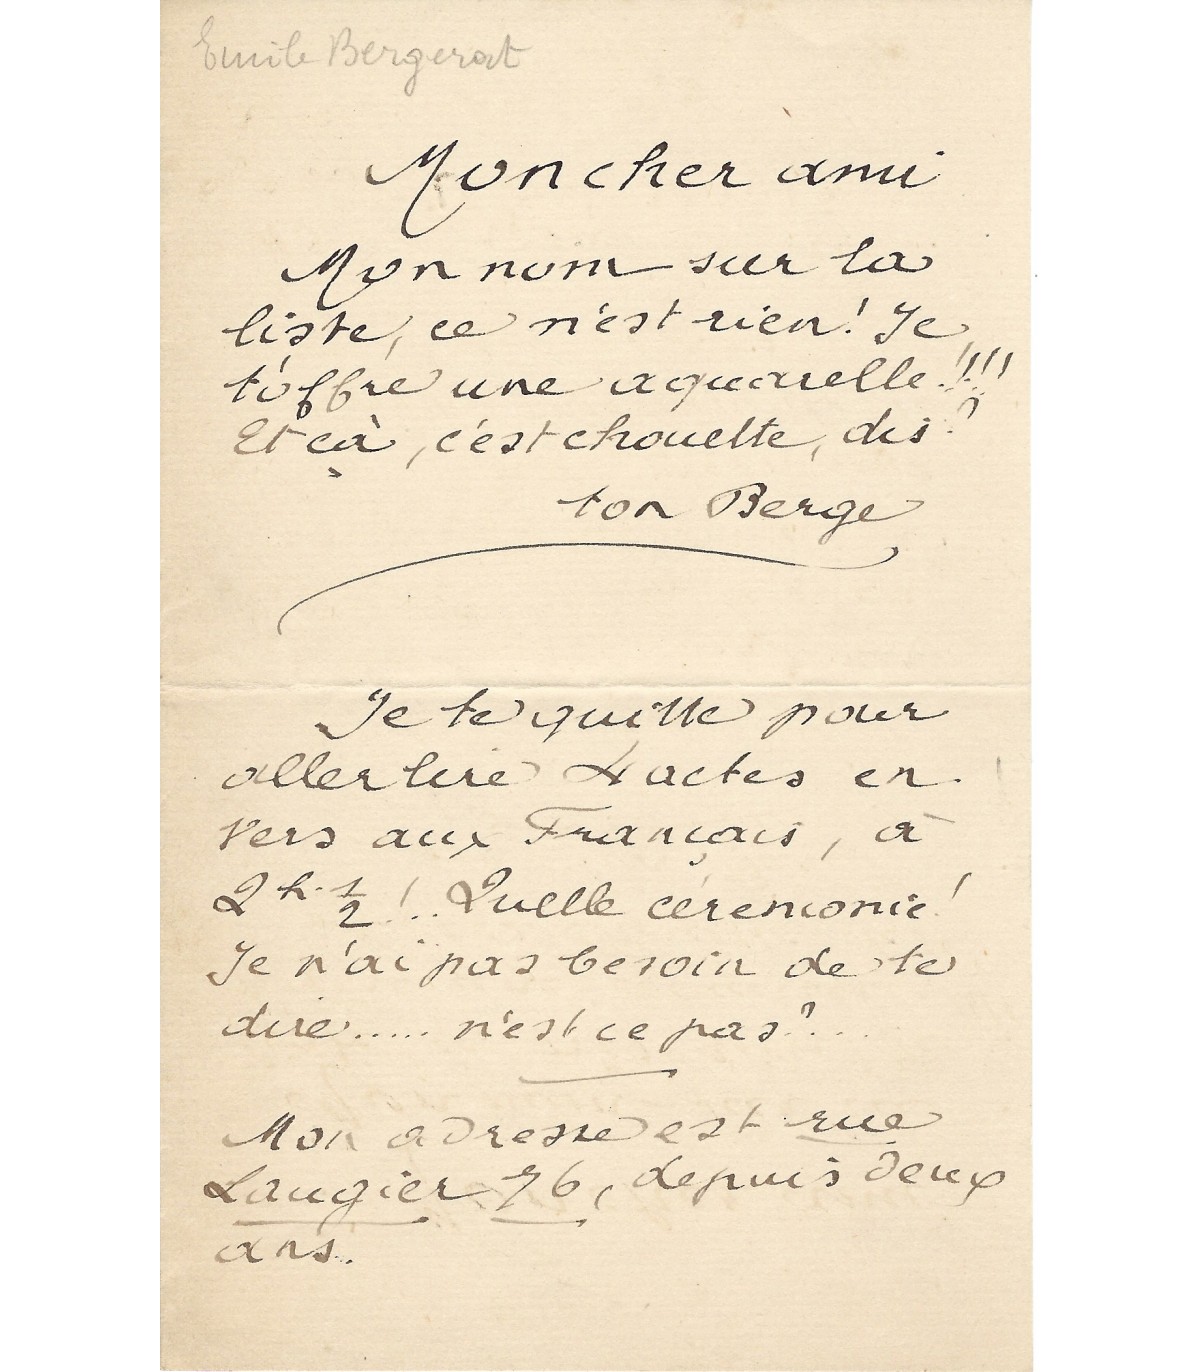 Emile Bergerat
Mon cher ami
Mon nom sur la
liste, ce n'est rien! Je
t'offre une aquarelle!!!!
Et çà, c'est chouette, dis?
ton Berge
Je te quitte pour
aller lire 4 actes en
vers aux Français, à
2h. 1/2!.. Quelle cérémonie!
Je n'ai pas besoin de te
dire..... n'est ce pas?...
Mon adresse est rue
Laugier 76, depuis deux
ans.